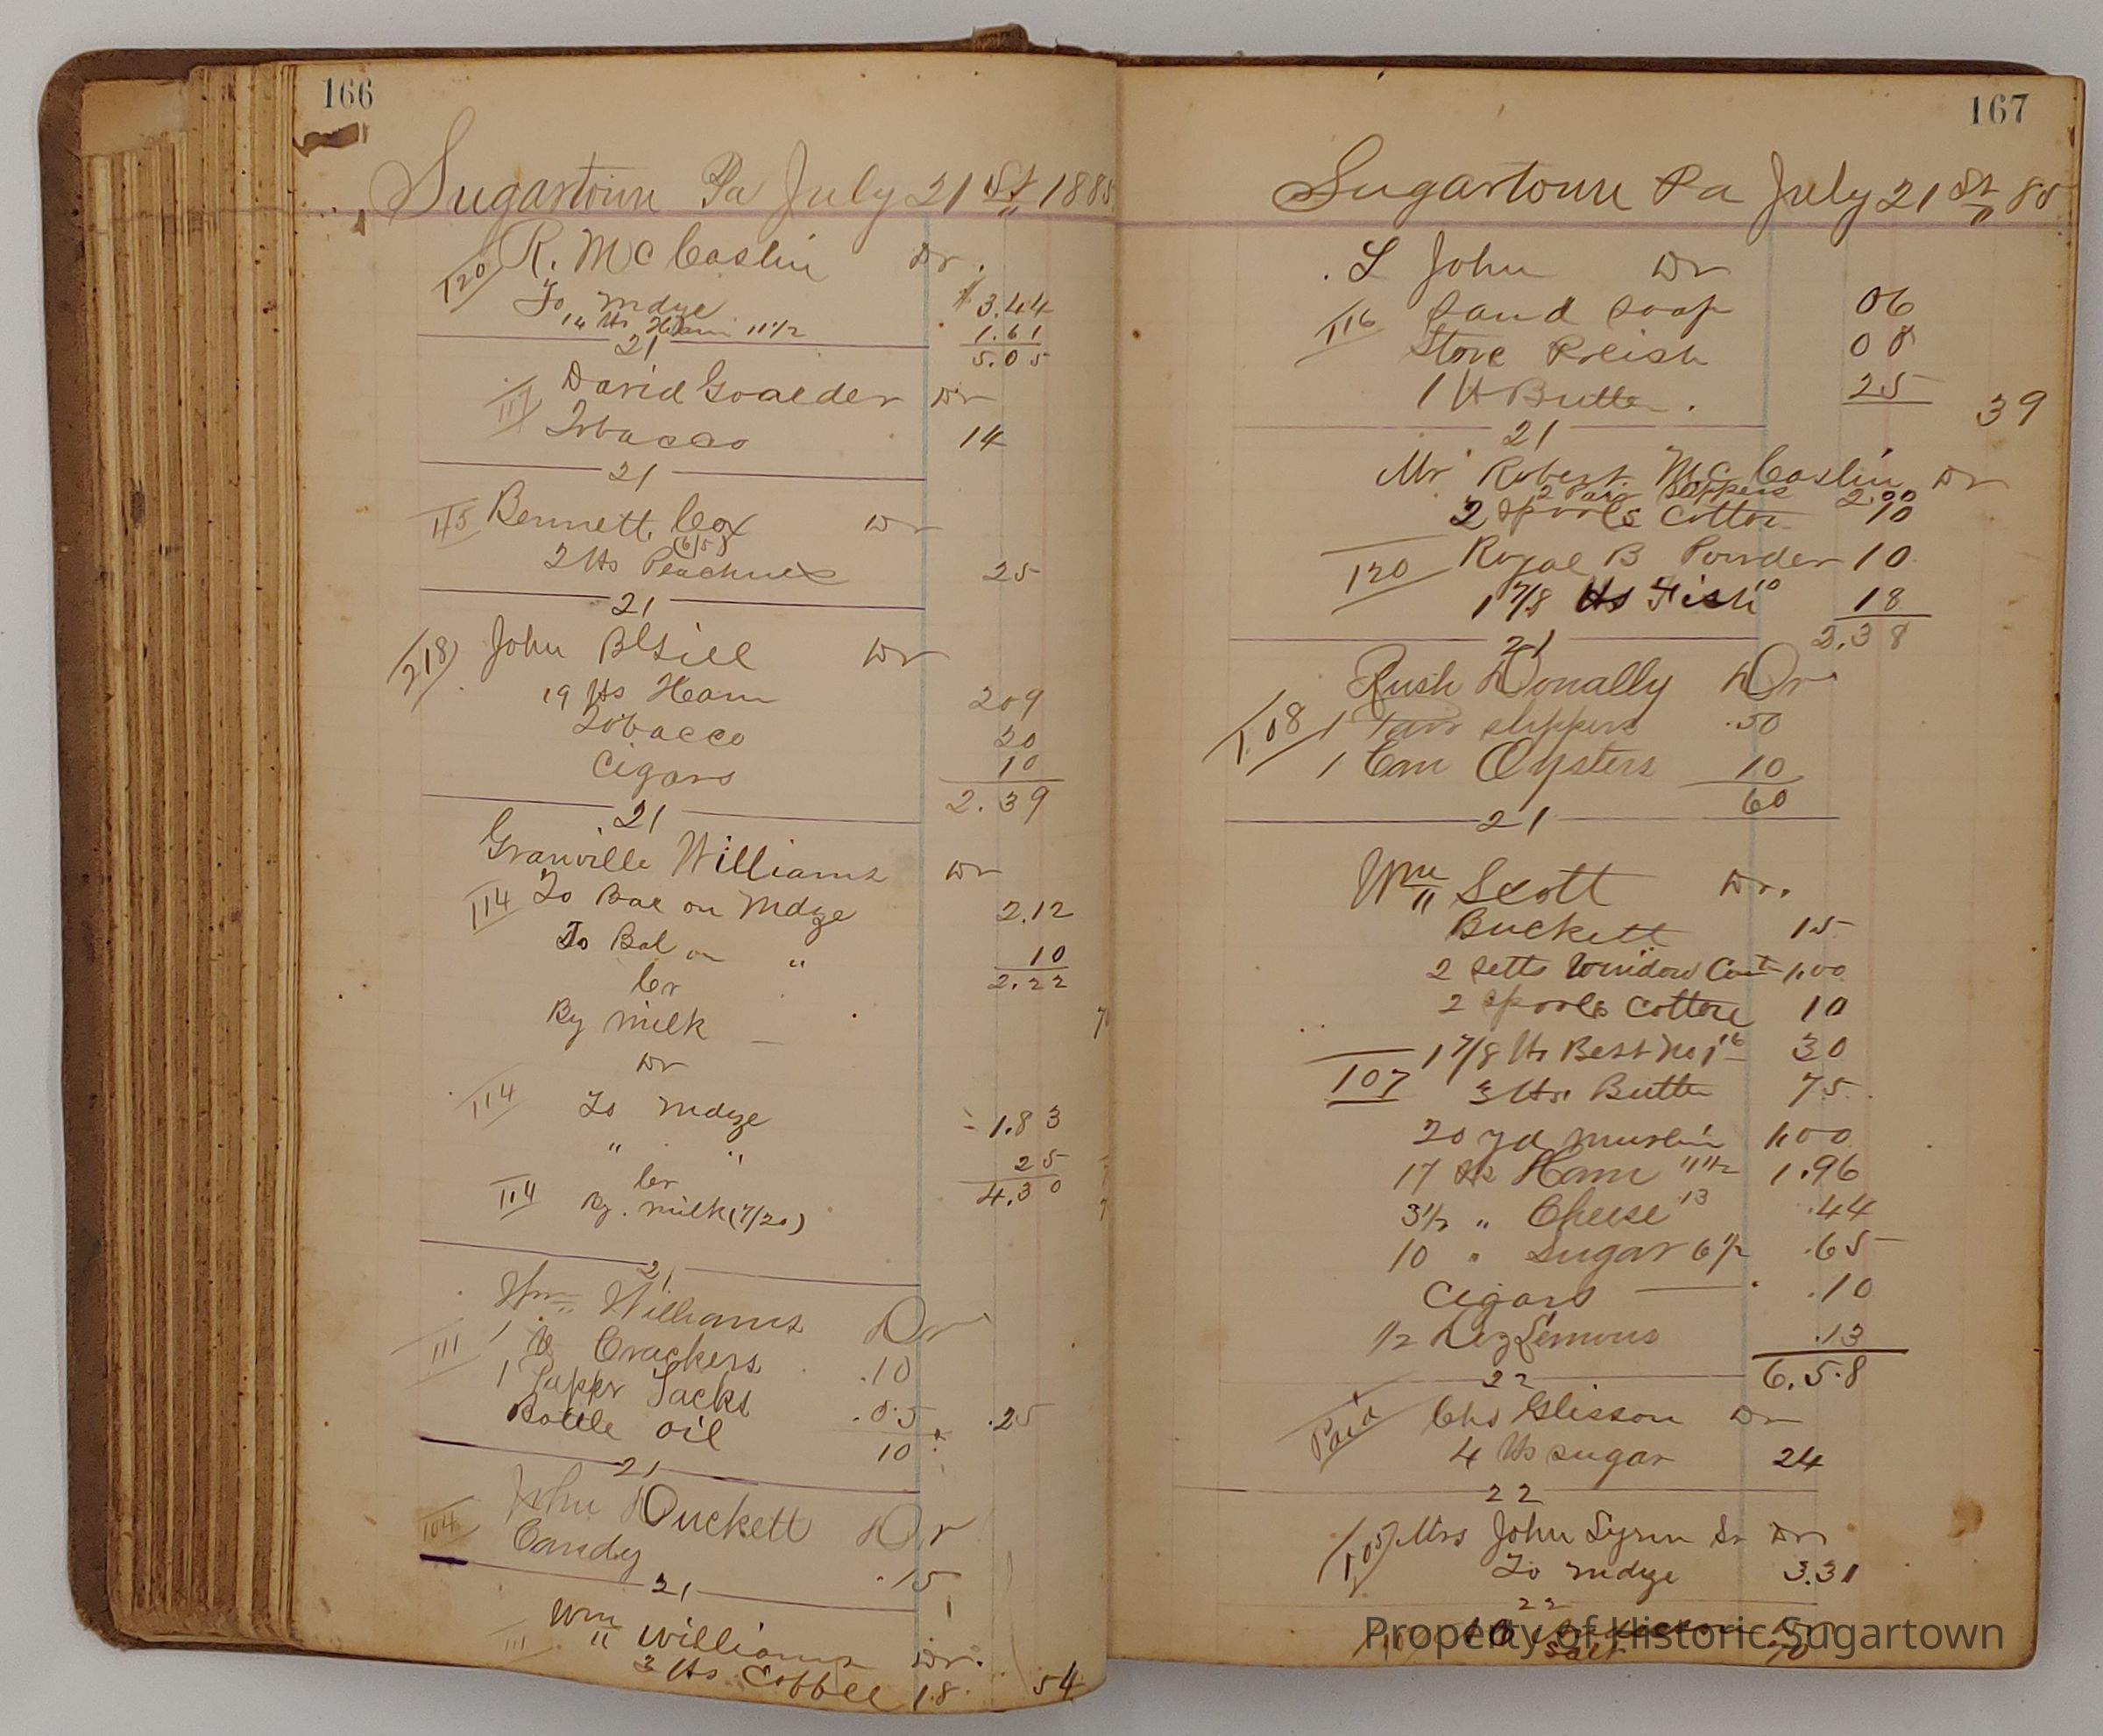 166
Sugartown Pa July 21 St 1885
120 R. McCaslin Dr.
To mdze $3.44
14 lbs Ham 11 1/2 1.61
5.05
21
117 David Goalder Dr
Tobacco 14
21
145 Bennett Cox Dr
2 lbs 25
21
218 John Dr
19 lbs Ham 209
Tobacco 20
Cigars 10
2.39
21
Granville Williams Dr
114 To Bal on Mdze 2.12
To Bal on " 10
2.22
Cr
By milk
Dr
114 To mdze 1.83
" " 25
4.30
Cr
114 By. milk (7/20)
21
Wm Williams Dr
111 1 lb Crackers .10
1 Papper Sacks .05 .25
Bottle Oil 10
21
104 John Duckett Dr
Candy .15
21
111 Wm Williams Dr.
3 lbs Coffee 18 54
167
Sugartown Pa July 21 St 85
L John Dr
116 Sand Soap 06
Stove Polish 08
1 lb Butter. 25 39
21
Mr Robert McCaslin Dr
2 Pair Slippers 2.00
2 Spools Cotton 10
120 Royal B Powder 10
1 7/8 lbs Fish 10 18
2.38
21
Rush Donally Dr
108 1 Pair slippers .50
1 Can Oysters 10
60
21
Wm Scott Dr.
Buckett 15
2 setts Window 1.00
2 Spools Cotton 10
107 1 7/8 lb Best No 1 16 30
3 lbs. Butter 75
20 yd Muslin 1.00
17 lb Ham 11 1/2 1.96
3 1/2 " Cheese 13 .44
10 " Sugar 6 1/2 .65
Cigars .10
1/2 Doz Lemons .13
6.58
22
Paid Chs Glisson Dr
4 lbs sugar 24
22
105 Mrs John Lynn Sr Dr
To mdze 3.31
22
Salt 10
Property of Historic Sugartown